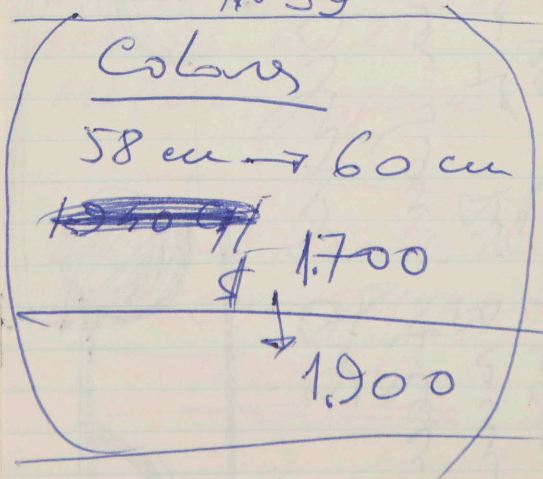 59
Colares
58 cm → 60 cm
$ 1.700
↓
1.900